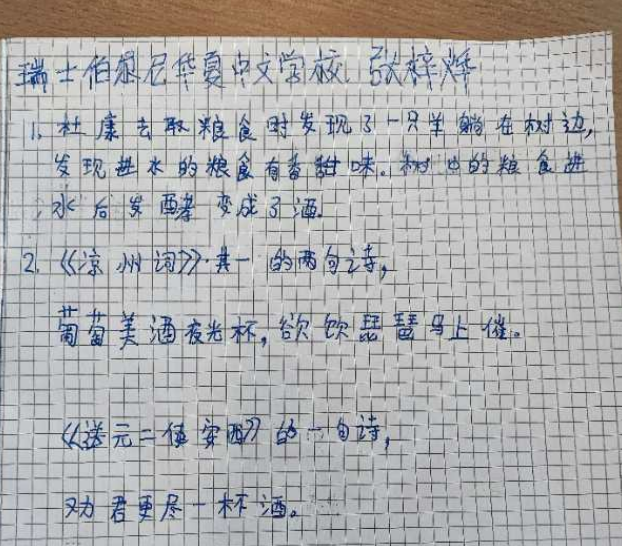 瑞士伯尔尼华夏中文学校 张梓烨
1. 杜康去取粮食时发现了一只羊躺在树边,
发现进水的粮食有香甜味。树中的粮食进
水后发酵变成了酒.
2. 《凉州词》·其一 的两句诗,
葡萄美酒夜光杯,欲饮琵琶马上催。
《送元二使安西》的一句诗,
劝君更尽一杯酒。